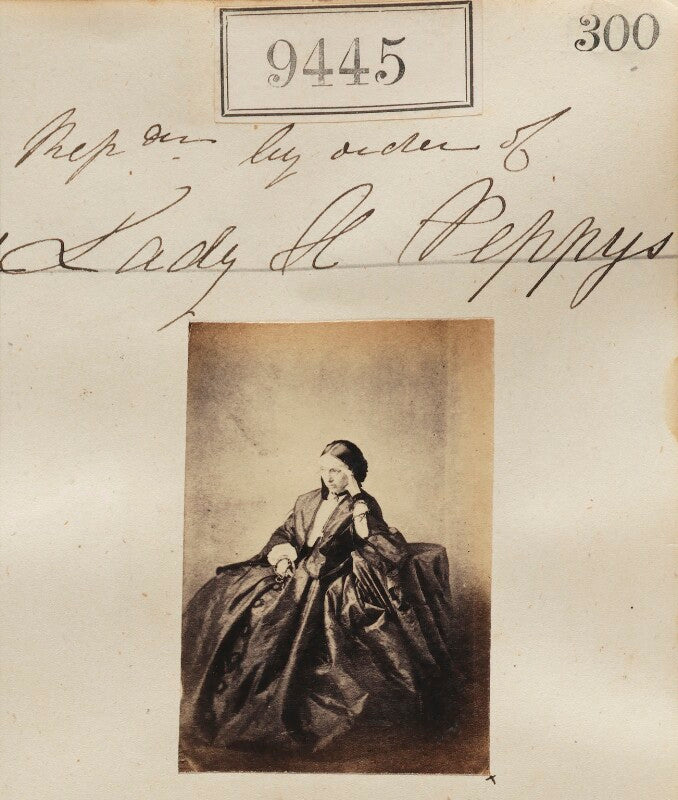 9445
300
Rep on by order of
Lady H Peppys